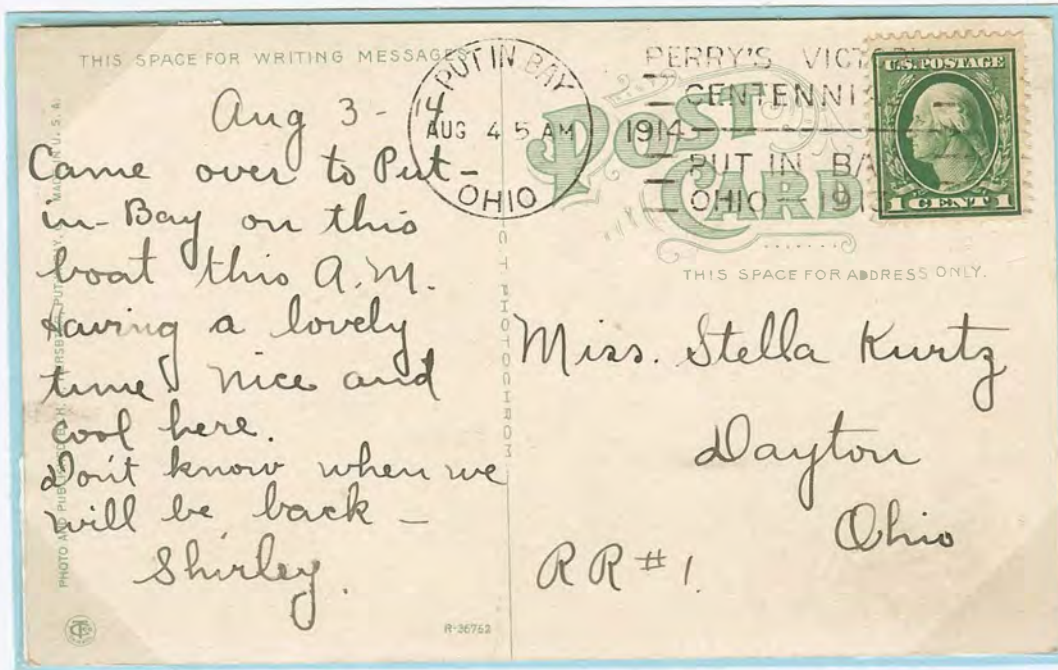 THIS SPACE FOR WRITING MESSAGES
Aug 3 - 14
Came over to Put-
in-Bay on this
boat this A.M.
Having a lovely
time. Nice and
cool here.
Don't know when we
will be back -
Shirley.
PHOTO AND PUBLISHED BY
MADE IN U. S. A.
PHOTOCHROM
R-36762
PUT IN BAY
AUG 4 5 AM
1914
OHIO
PERRY'S
CENTENNIAL
PUT IN BAY
OHIO 1913
POST CARD
U.S. POSTAGE
1 CENT 1
THIS SPACE FOR ADDRESS ONLY.
Miss. Stella Kurtz
Dayton
Ohio
RR #1.